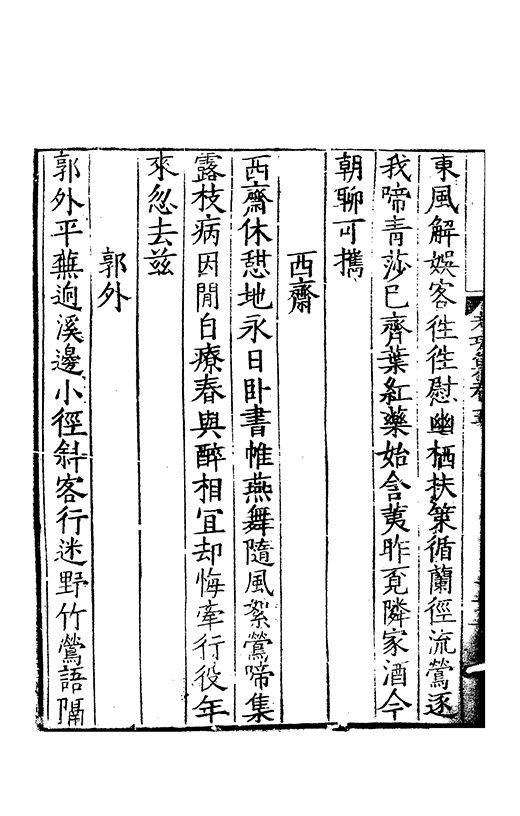 東風解娛客徃徃慰幽栖扶策循蘭徑流鶯逐
我啼青莎已齊葉紅藥始含荑昨覓隣家酒今
朝聊可攜
西齋
西齋休憩地永日卧書帷燕舞隨風絮鶯啼集
露枝病因閒自療春與醉相宜却悔牽行役年
來忽去茲
郭外
郭外平蕪逈溪邊小徑斜客行迷野竹鶯語隔